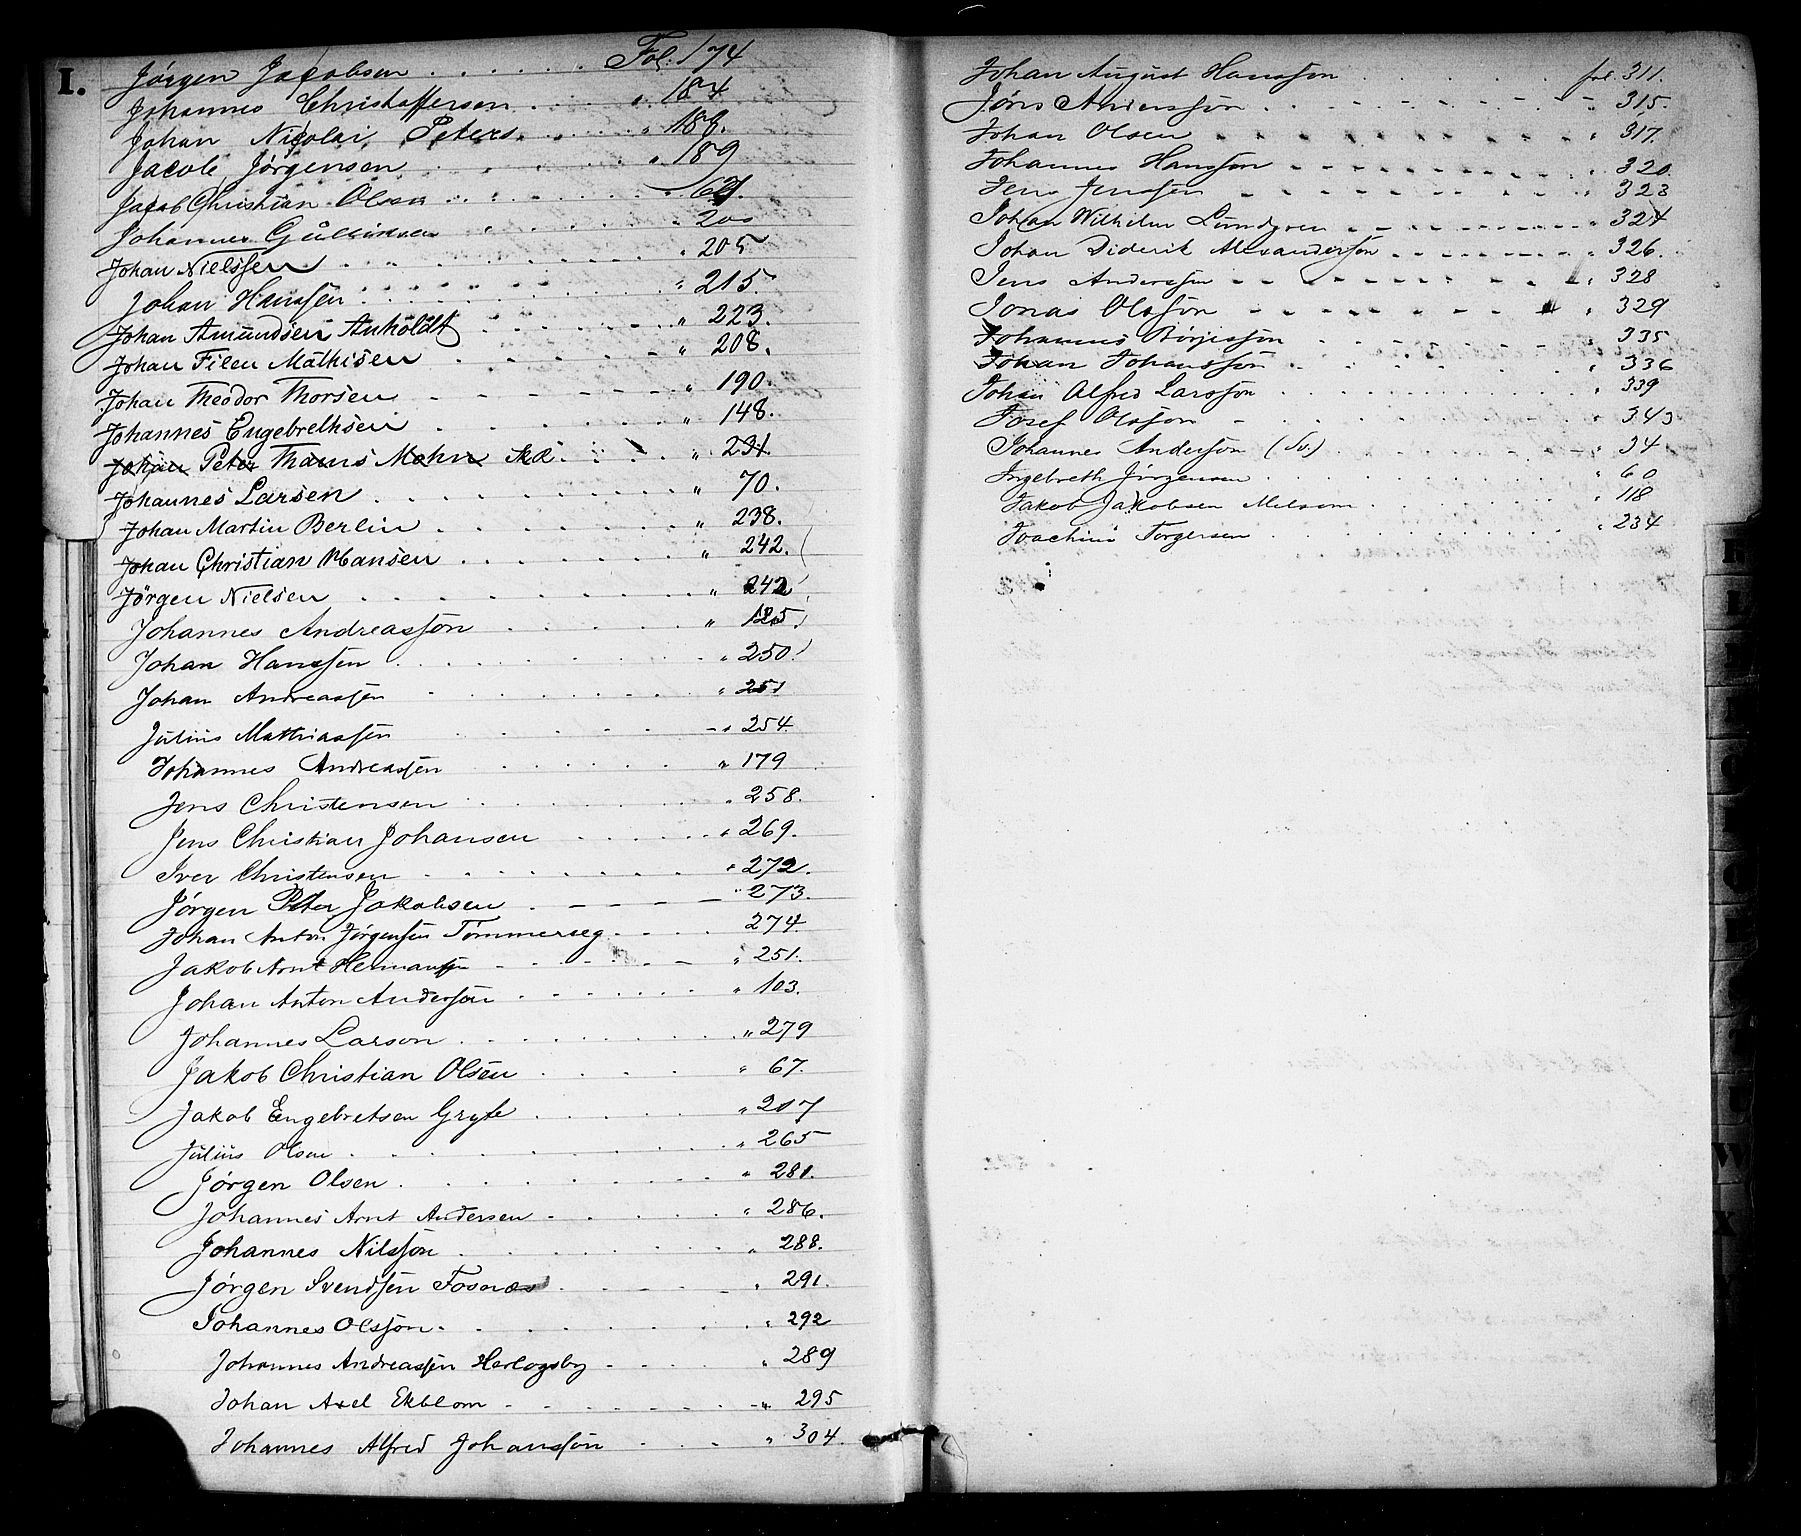 I.
Jørgen Jacobsen . . . . . . Fol. 174
Johannes Christoffersen . . . . " 184
Johan Nicolai Peters . . . . " 188.
Jacob Jørgensen . . . . " 189
Jacob Christian Olsen . . . . 67.
Johannes Gullicksen . . . . " 200
Johan Nielssen . . . . " 205
Johan Hanssen . . . . " 215.
Johan Amundsen Anholdt . . . . " 223.
Johan Filen Mathisen . . . . " 208.
Johan Theodor Thorsen . . . . " 190.
Johannes Engebrethsen . . . . " 148.
Johan Peter Thams Mohn . . . . " 231.
Johannes Larsen . . . . " 70.
Johan Martin Berlin . . . . " 238.
Johan Christian Hansen . . . . " 242.
Jörgen Nielsen . . . . " 242
Johannes Andreasson . . . . " 125.
Johan Hanssen . . . . " 250.
Johan Andreassen . . . . " 251
Julius Mathiassen . . . . " 254.
Johannes Andreassen . . . . " 179
Jens Christensen . . . . " 258.
Jens Christian Johansen . . . . " 269.
Iver Christensen . . . . " 272.
Jørgen Peter Jakobsen . . . . " 273.
Johan Anton Jørgensen Tømmerseg . . . . 274.
Jakob Arnt Hermansen . . . . " 251.
Johan Anton Anderson . . . . " 103.
Johannes Larson . . . . " 279
Jakob Christian Olsen . . . . " 67.
Jakob Engebretsen Gryte . . . . " 207
Julius Olsen . . . . " 265
Jørgen Olsen . . . . " 281.
Johannes Arnt Andersen . . . . " 286.
Johannes Nilsson . . . . " 288.
Jørgen Svendsen Fosnæs . . . . " 291.
Johannes Olsson . . . . " 292
Johannes Andreassen Herlogsby . . . . " 289
Johan Axel Ekblom . . . . " 295
Johannes Alfred Johansson . . . . " 304.
Johan August Hansson . . . . fol. 311.
Jöns Andersson . . . . " 315.
Johan Olsen . . . . " 317.
Johannes Hansson . . . . " 320.
Jens Jenssen . . . . " 323
Johan Wilhelm Lundgren . . . . " 324
Johan Diderik Alexanderson . . . . " 326.
Jens Anderssen . . . . " 328
Jonas Olsson . . . . " 329
Johannes Börjesson . . . . " 335
Johan Johansson . . . . " 336
Johan Alfred Larsson . . . . " 339
Josef Olsson . . . . " 343
Johannes Anderson (Sv.) . . . . " 34
Ingebreth Jörgensen . . . . " 60
Jakob Jakobsen Melsom . . . . " 118
Joachim Torgersen . . . . " 234